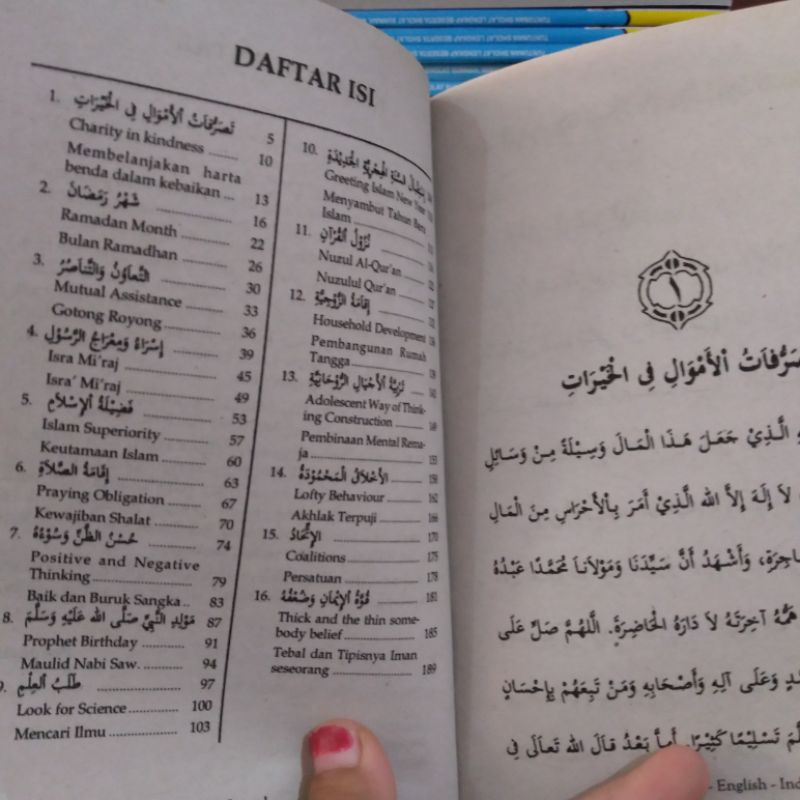 TUNTUNAN SHOLAT LENGKAP BESERTA
TUNTUNAN SHOLAT LENGKAP BESERTA
DAFTAR ISI
1. تَصَرُّفَاتُ الْأَمْوَالِ فِي الْخَيْرَاتِ 5
Charity in kindness ........ 10
Membelanjakan harta
benda dalam kebaikan ... 13
2. شَهْرُ رَمَضَانَ .................. 16
Ramadan Month .............. 22
Bulan Ramadhan .............. 26
3. التَّعَاوُنُ وَالتَّنَاصُرُ .......... 30
Mutual Assistance ............ 33
Gotong Royong ................ 36
4. إِسْرَاءُ وَمِعْرَاجُ الرَّسُوْلِ ...... 39
Isra Mi'raj ...................... 45
Isra' Mi'raj ...................... 49
5. فَضِيْلَةُ الْإِسْلَامِ .............. 53
Islam Superiority ............ 57
Keutamaan Islam ............ 60
6. إِقَامَةُ الصَّلَاةِ ................ 63
Praying Obligation .......... 67
Kewajiban Shalat ............ 70
7. حُسْنُ الظَّنِّ وَسُوْءُهُ .......... 74
Positive and Negative
Thinking ........................ 79
Baik dan Buruk Sangka .. 83
8. مَوْلِدِ النَّبِيِّ صَلَّى الله عَلَيْهِ وَسَلَّمَ 87
Prophet Birthday ............ 91
Maulid Nabi Saw. ............ 94
9. طَلَبُ الْعِلْمِ .................... 97
Look for Science .............. 100
Mencari Ilmu .................. 103
10. السَّنَةِ الْهِجْرِيَّةِ الْجَدِيْدَةِ
Greeting Islam New Year
Menyambut Tahun Baru
Islam ............
11. نُزُوْلُ الْقُرْآنِ ............
Nuzul Al-Qur'an ............
Nuzulul Qur'an ............
12. إِقَامَةُ الزَّوْجِيَّةِ ............
Household Development
Pembangunan Rumah
Tangga ............
13. تَرْبِيَةُ الْأَجْيَالِ الرُّوْحَانِيَّةِ
Adolescent Way of Think-
ing Construction ............
Pembinaan Mental Rema-
ja ............ 153
14. الْأَخْلَاقُ الْمَحْمُوْدَةُ ........ 158
Lofty Behaviour ............ 162
Akhlak Terpuji ............ 166
15. الْإِتِّحَادُ ............ 170
Coalitions ............ 175
Persatuan ............ 178
16. قُوَّةُ الْإِيْمَانِ وَضَعْفُهُ ........ 181
Thick and the thin some-
body belief ............ 185
Tebal dan Tipisnya Iman
seseorang ............ 189
١
الْأَمْوَالِ فِي الْخَيْرَاتِ
الَّذِيْ جَعَلَ هَذَا الْمَالَ وَسِيْلَةً مِنْ وَسَائِلِ
لَا إِلَهَ إِلَّا الله الَّذِيْ أَمَرَ بِالْأَحْرَاسِ مِنَ الْمَالِ
وَأَشْهَدُ أَنَّ سَيِّدَنَا وَمَوْلَانَا مُحَمَّدًا عَبْدُهُ
هَمُّهُ آخِرَتَهُ لَا دَارَهُ الْحَاضِرَةِ. اللَّهُمَّ صَلِّ عَلَى
وَعَلَى آلِهِ وَأَصْحَابِهِ وَمَنْ تَبِعَهُمْ بِإِحْسَانٍ
تَسْلِيْمًا كَثِيْرًا. أَمَّا بَعْدُ قَالَ الله تَعَالَى فِي
- English -